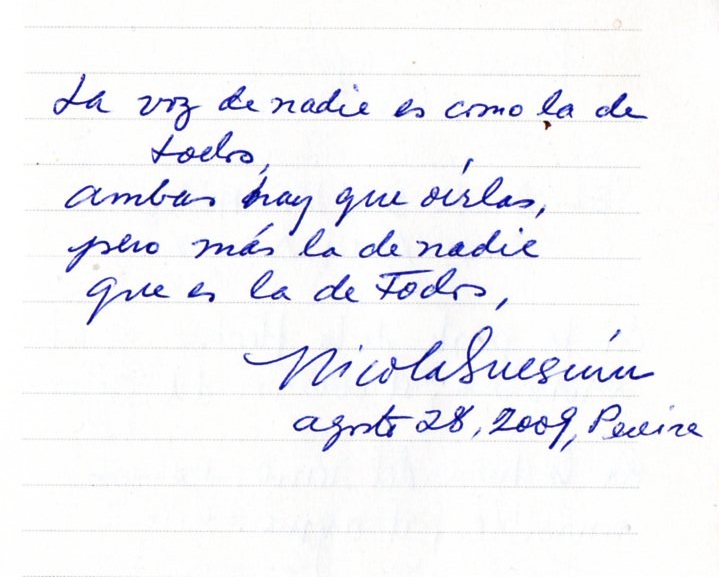 La voz de nadie es como la de
todos,
ambas hay que oírlas,
pero más la de nadie
que es la de Todos,
Nicolás Suescún
agosto 28, 2009, Pereira